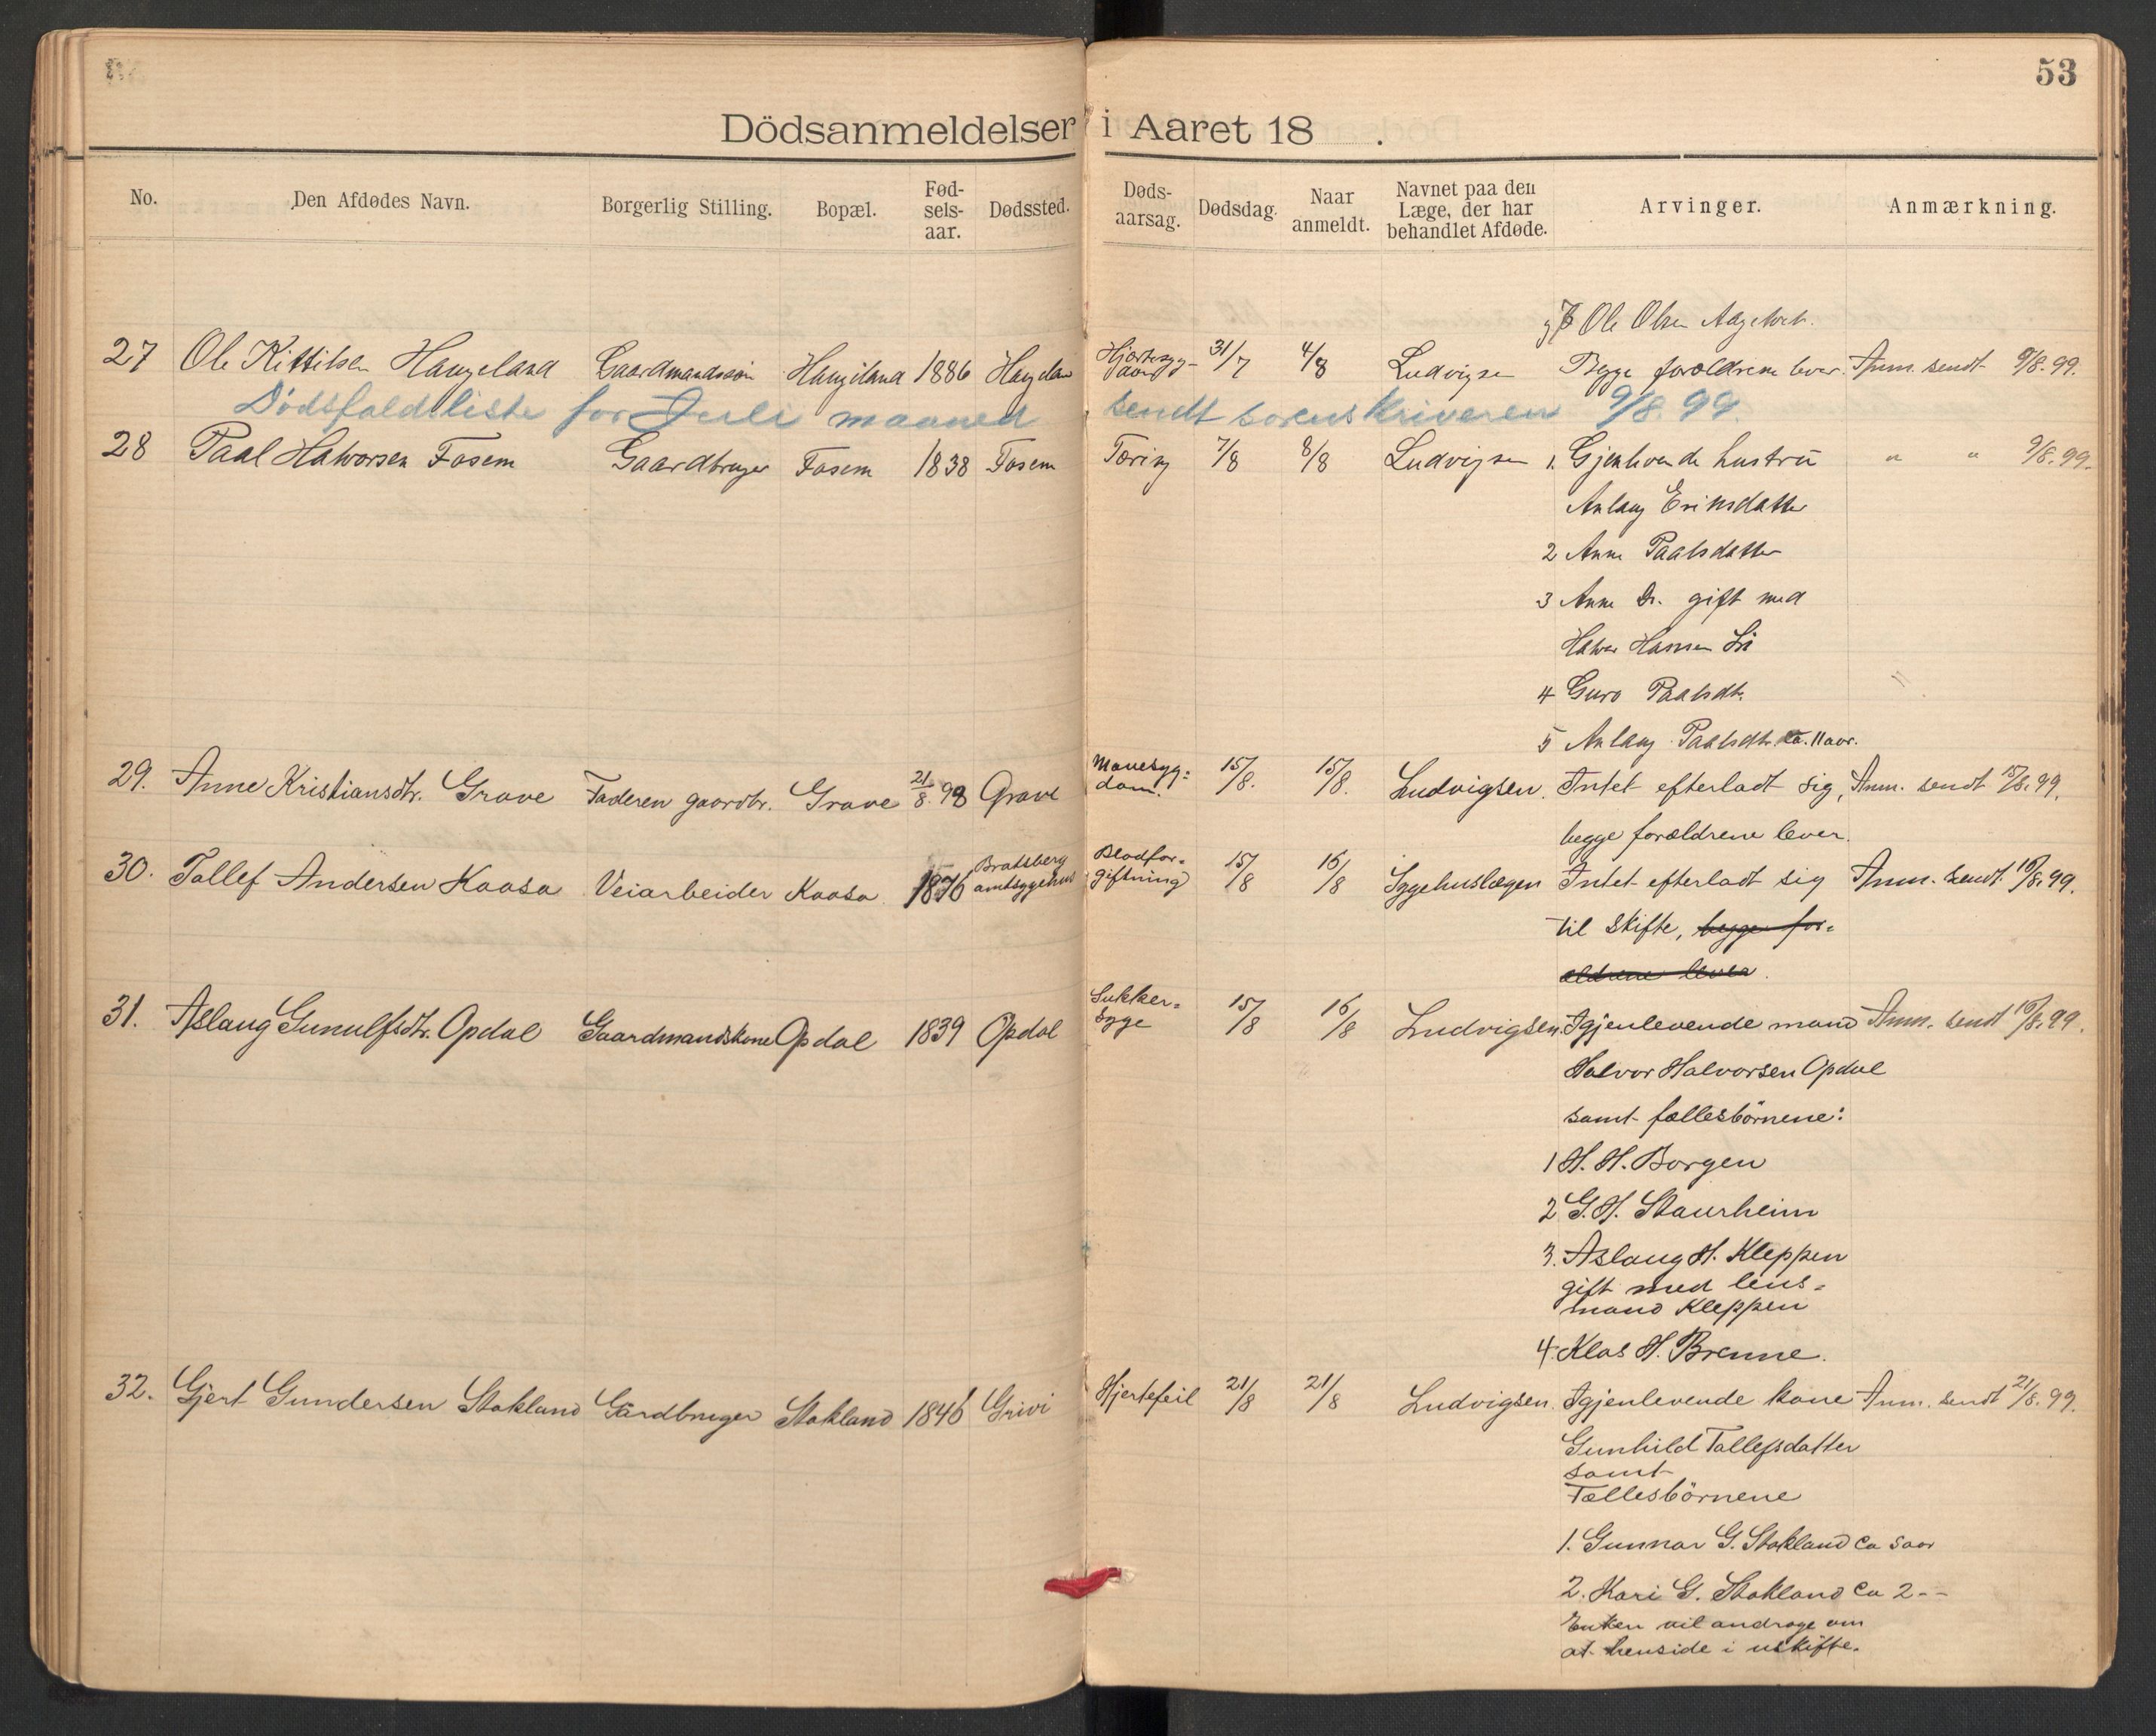 53
Dödsanmeldelser i Aaret 18 .
No. Den Afdødes Navn. Borgerlig Stilling. Bopæl. Fødselsaar. Dødssted. Dødsaarsag. Dødsdag. Naar anmeldt. Navnet paa den Læge, der har behandlet Afdøde. Arvinger. Anmærkning.
Ole Olsen
27 Ole Kittilsen Haugeland Gaardmandssøn Haugeland 1886 31/7 4/8 Ludvigsen Begge forældrene lever. Anm. sendt 9/8.99.
Dödsfaldsliste for Juli maaned sendt sorenskriveren 9/8.99.
28 Paal Halvorsen Fosem Gaardbruger Fosem 1838 Fosem Tæring 7/8 8/8 Ludvigsen 1. Gjenlevende hustru " " 9/8.99.
Aslaug Eriksdatter
2 Anne Paalsdatter
3 Anne Do. gift med
Halvor Hansen Li
4 Guro Paalsdtr.
5 Aslaug Paalsdtr. ca. 11 aar.
29. Anne Kristiansdtr. Grave Faderen gaardbr. Grave 21/8.98 Grave Mavesyg=
dom. 15/8. 15/8. Ludvigsen. Intet efterladt sig, Anm. sendt 15/8.99.
begge forældrene lever.
30. Tallef Andersen Kaasa Veiarbeider Kaasa 1876 Bratsberg
amtssygehus Blodfor=
giftning 15/8 16/8 Sygehuslægen Intet efterladt sig Anm. sendt 16/8.99.
til skifte, begge for=
ældrene lever.
31. Aslaug Gunulfsdtr. Opdal Gaardmandskone Opdal 1839 Opdal Sukker=
syge 15/8 16/8 Ludvigsen. Igjenlevende mand Anm. sendt 16/8.99.
Halvor Halvorsen Opdal
samt fællesbörnene:
1 H. H. Borgen
2 G. H. Staurheim
3. Aslaug H. Kleppen
gift med lens=
mand Kleppen
4. Klas H. Brenne.
32. Gjert Gundersen Stokland Gårdbruger Stokland 1846 Grivi Hjertefeil 21/8 21/8 Ludvigsen. Igjenlevende kone Anm. sendt 21/8.99.
Gunhild Tallefsdatter
samt
Fællesbörnene
1. Gunnar G. Stokland ca 5 aar
2. Kari G. Stokland ca 2 - -
Enken vil andrage om
at hensidde i uskifte.